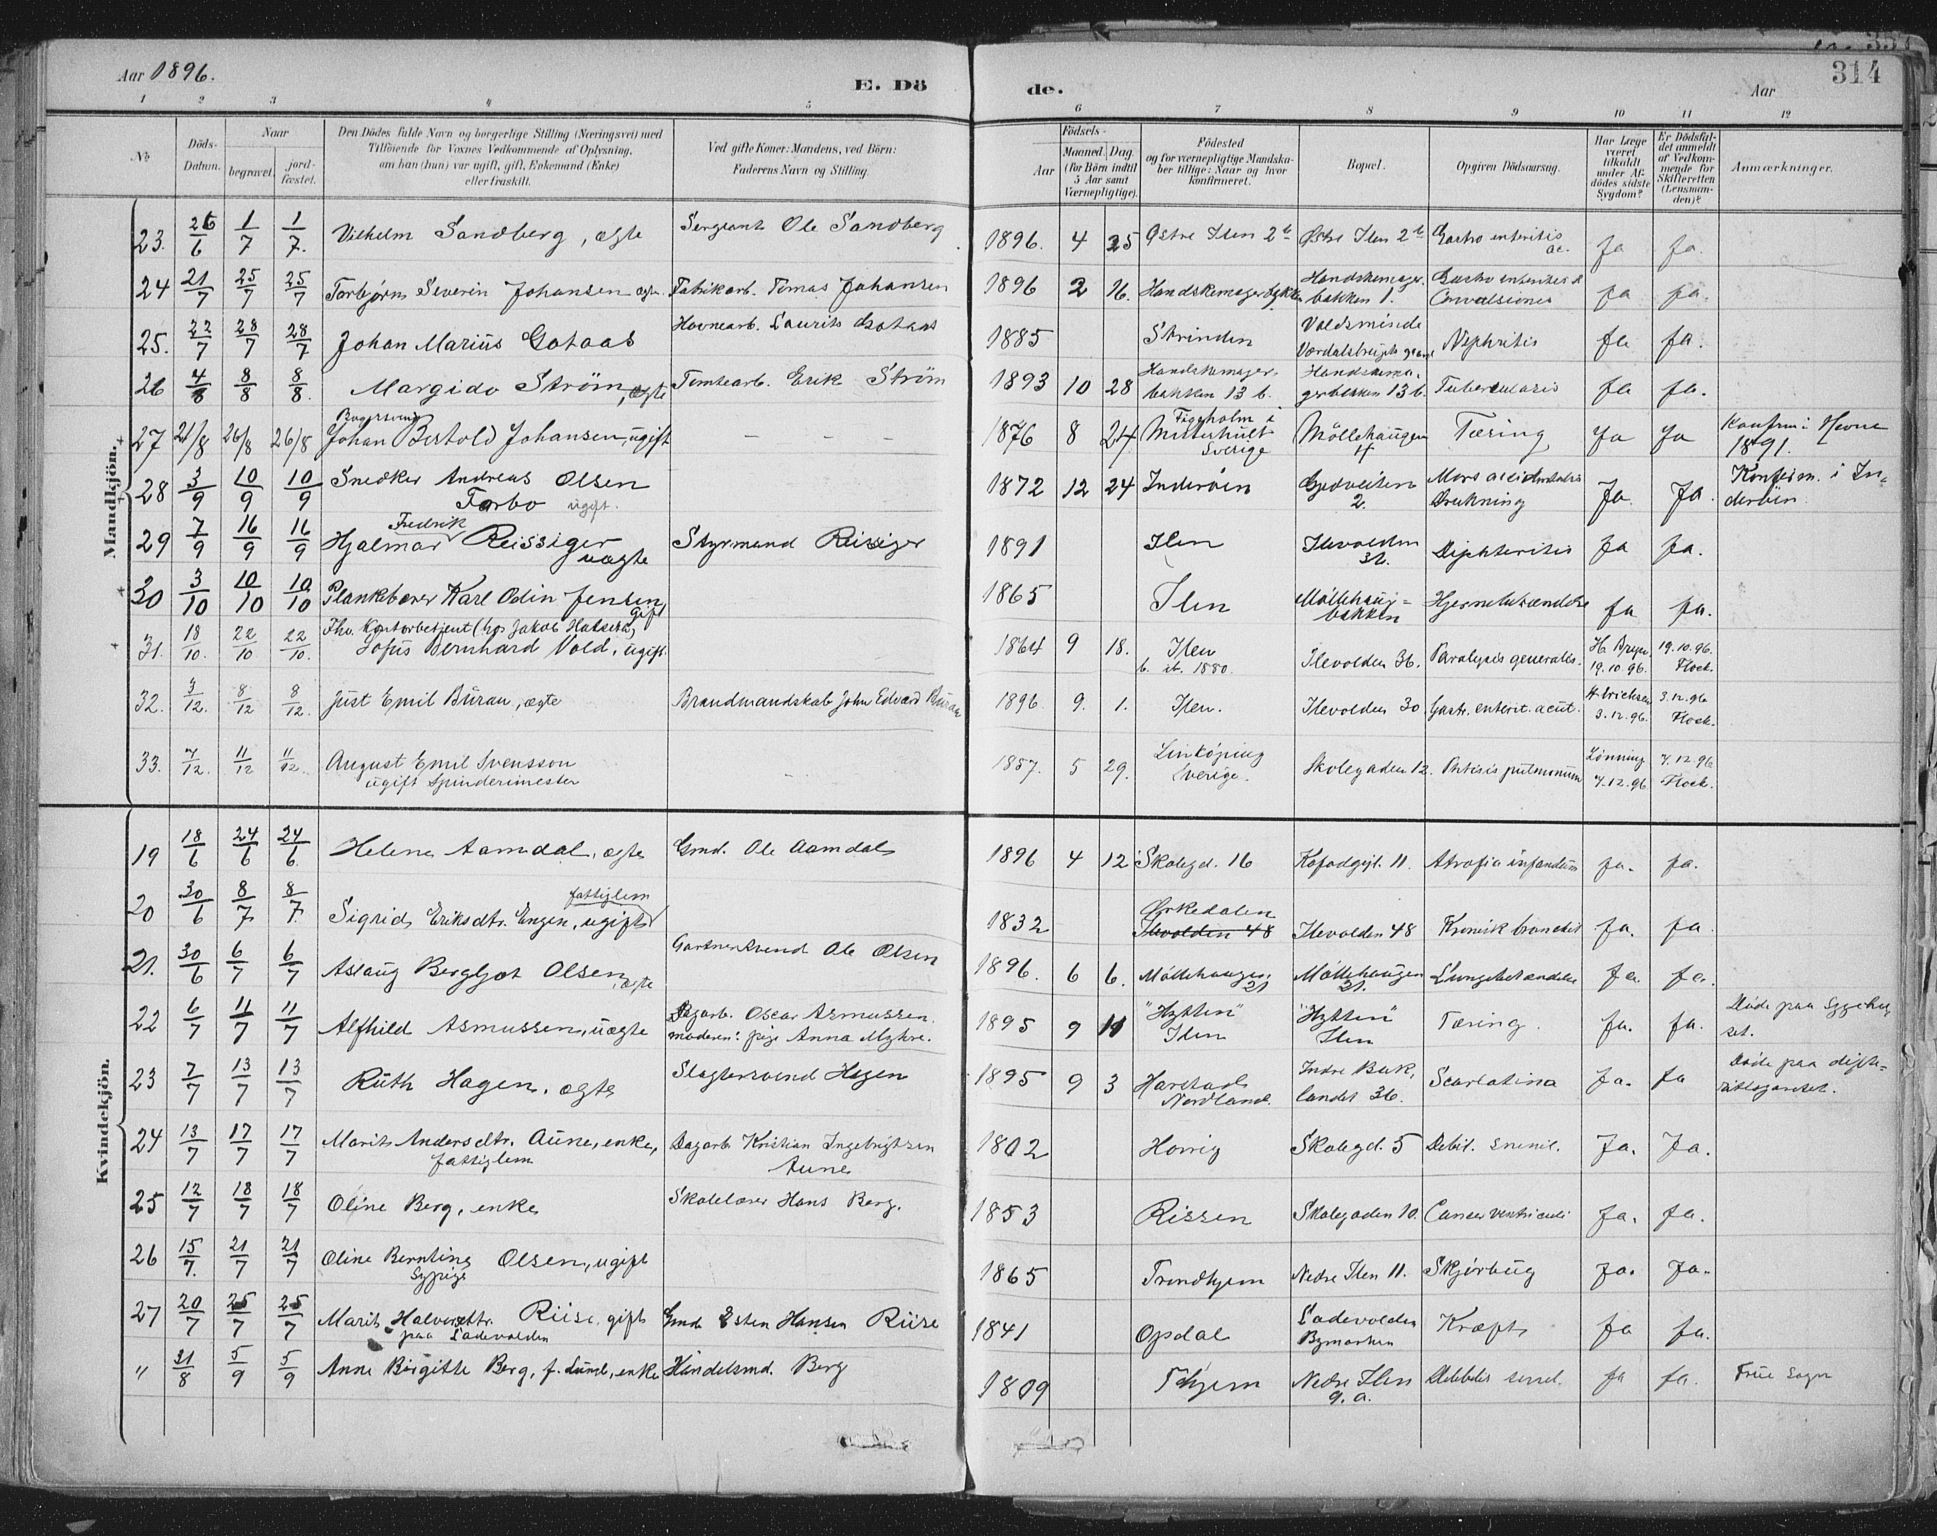 Aar 1896.
E. Dö
de.
314
Aar
1 2 3 4 5 6 7 8 9 10 11 12
No
Döds-Datum.
Naar
begravet.
jord-fæstet.
Den Dödes fulde Navn og borgerlige Stilling (Næringsvei) med
Tilföiende for Voxnes Vedkommende af Oplysning,
om han (hun) var ugift, gift, Enkemand (Enke)
eller fraskilt.
Ved gifte Koner: Mandens, ved Børn:
Faderens Navn og Stilling.
Födsels-
Aar
Maaned. Dag.
(for Börn indtil 5 Aar samt Værnepligtige).
Födested
og for værnepligtige Mandskaber tillige: Naar og hvor konfirmeret.
Bopæl.
Opgiven Dödsaarsag.
Har Læge været tilkaldt under Afdödes sidste Sygdom?
Er Dödsfaldet anmeldt af Vedkommende for Skifteretten (Lensmanden)?
Anmærkninger.
Mandkjön.
23. 26/6 1/7 1/7 Vilhelm Sandberg, ægte Sergeant Ole Sandberg 1896. 4 25 Østre Ilen 2b Østre Ilen 2b Gastro enteritis ac. Ja Ja.
24 21/7 25/7 25/7 Torbjørn Severin Johansen ægte Fabrikarb. Tomas Johansen 1896 2 16. Handskemagerbakken 1. Handskemagerbakken 1. Gastro enterites & Convulsiones ja ja.
25. 22/7 28/7 28/7 Johan Marius Gotaas Havnearb. Laurits Gotaas 1885 Strinden Voldsminde Nephritis Ja Ja.
26 4/8 8/8 8/8. Margido Strøm, ægte Tomtearb. Erik Strøm 1893 10 28 Handskemagerbakken 13 b. Handskemagerbakken 13 b. Tuberculosis Ja Ja.
27 21/8 26/8 26/8 Bagersvend Johan Bertold Johansen, ugift – – – 1876 8 24. Figeholm i Misterhult Sverige Möllehaugen 4 Tæring Ja Ja Konfirm. i Hevne 1891.
28 3/9 10/9 10/9 Snedker Andreas Olsen Forbo ugift. 1872 12 24 Inderøen 2. Mors accidentalis Drukning Ja. Ja. Konfirm. i Inderöen.
29 7/9 16/9 16/9 Hjalmar Fredrik Reissiger uægte Styrmand Reissiger 1891 Ilen Ilevolden 36. Diphteritis Ja Ja.
30 3/10 10/10 10/10 Plankebærer Karl Odin Jensen gift 1865 Ilen Möllehaugbakken Hjernebetændelse Ja ja.
31. 18/10. 22/10 22/10. Fhv. Kontorbetjent (hos Jakob Halseth) Sofus Bernhard Vold, ugift. 1864 9 18. Ilen b. ib. 1880. Ilevolden 36. Paralysis generalis. H. Bryn 19.10.96. 19.10.96. Flock.
32. 3/12. 8/12 8/12. Just Emil Buran, ægte Brandmandskab John Edvard Buran 1896 9. 1. Ilen. Ilevolden 30. Gastr. enterit. acut. H. Erichsen 3.12.96. 3.12.96 Flock.
33. 7/12. 11/12 11/12. August Emil Svensson ugift Spinderimester – 1857. 5 29. Linköping Sverige. Skolegaden 12. Phtisis pulmonum Lönning 7.12.96. 7.12.96 Flock.
Kvindekjön.
19 18/6 24/6 24/6. Helene Aamdal, ægte Gmd. Ole Aamdal 1896 4 12 Skolegd. 16 11. Atrofia infandum ja. ja.
20 30/6 8/7 8/7. Sigrid Eriksdtr. Engen, ugift fattiglem 1832 Ørkedalen Ilevolden 48 Ilevolden 48 Kronisk bronchit Ja. ja.
21. 30/6 6/7 6/7 Aslaug Bergljot Olsen, ægte Gartnersvend Ole Olsen 1896. 6 6. Möllehaugen 21 Möllehaugen 21. Lungebetændelse Ja. Ja.
22 6/7 11/7 11/7 Alfhild Asmussen, uægte Dagarb. Oscar Asmussen. moderen: pige Anna Myhre. 1895 9 11 "Hytten" Ilen "Hytten" Ilen Tæring. Ja. Ja. Døde paa Sygehuset.
23 7/7 13/7 13/7 Ruth Hagen, ægte Slagtersvend Hagen 1895 9 3 Harstad Nordland. Indre Baklandet 36. Scarlatina Ja. Ja Døde paa difteritlazarettet.
24 13/7 17/7 17/7 Marit Andersdtr. Aune, enke, fattiglem Dagarb Kristian Ingebrigtsen Aune 1802 Horrig Skolegd. 5 Debil. senil. Ja. Ja.
25 12/7 18/7 18/7 Oline Berg, enke Skolelærer Hans Berg. 1853 Rissen Skolegaden 10. Cancer ventriculi Ja. Ja.
26 15/7. 21/7 21/7 Oline Berntine Olsen, ugift Sypige 1865 Trondhjem Nedre Ilen 11. Skjørbug Ja. Ja.
27 20/7 25/7 25/7 Marit Halvorsdtr. Riise, gift paa Ladevolden Gmd Esten Hansen Riise 1841 Opdal Ladevolden Bymarken Kræft Ja Ja.
" 31/8 5/9 5/9 Anne Birgitte Berg, f. Lund, enke Handelsmd. Berg 1809 Thjem Nedre Ilen 9. a. Debilitas senil. Ja Ja. Frue Sogn